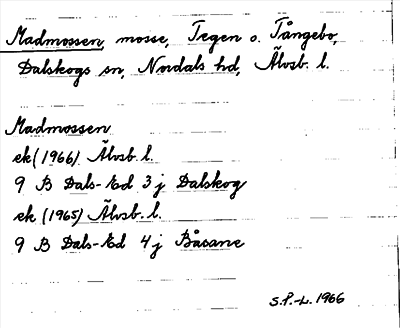 Madmossen, mosse, Tegen o. Tångebo,
Dalskogs sn, Nordals hd, Älvsb. l.
Madmossen
ek (1966) Älvsb. l.
9 B Dals-Ed 3 j Dalskog
ek (1965) Älvsb. l.
9 B Dals-Ed 4 j Båsane
S.P.-L. 1966